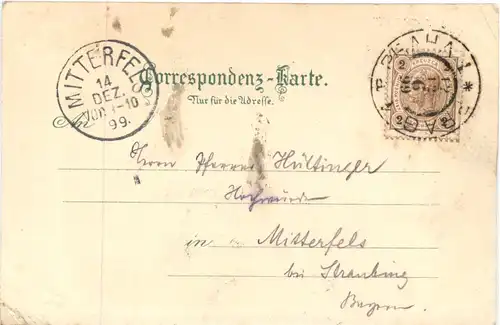 MITTERFELS
14
DEZ.
99.
Correspondenz-Karte.
Nur für die Adresse.
An
PRAHA
PRAG
2 2
Herrn Pfarrer Hüttinger
Hochwürden
in Mitterfels
bei Straubing
Bayern